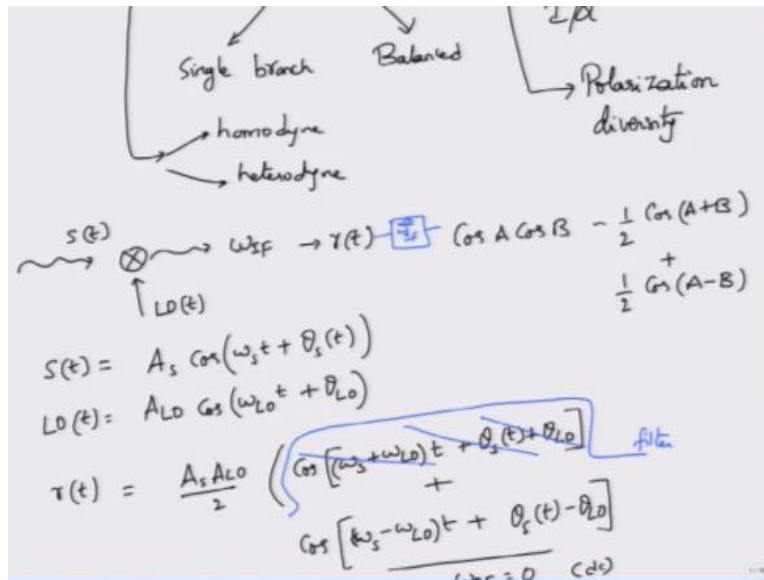 I/Q
Single branch
Balanced
Polarization
diversity
homodyne
heterodyne
S(t)
ω_IF → r(t) Cos A Cos B - 1/2 Cos(A+B)
+
1/2 Cos(A-B)
LO(t)
S(t) = A_s Cos(ω_s t + θ_s(t))
LO(t) = A_LO Cos(ω_LO t + θ_LO)
r(t) = A_s A_LO / 2 (Cos[(ω_s+ω_LO)t + θ_s(t)+θ_LO]
filter
+
Cos[(ω_s-ω_LO)t + θ_s(t)-θ_LO]
= 0 (dc)